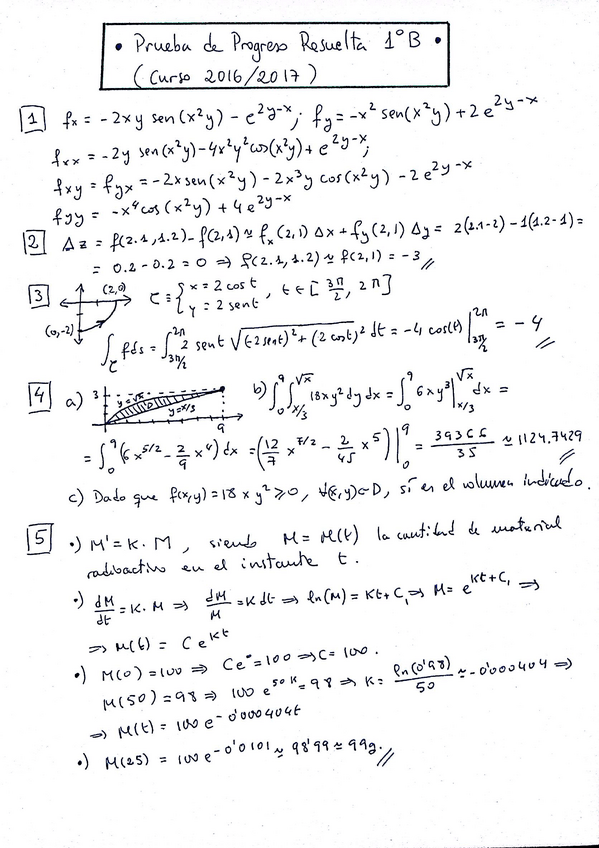 • Prueba de Progreso Resuelta 1º B •
(Curso 2016/2017)
1 fx = -2xy sen(x²y) - e^{2y-x}; fy = -x² sen(x²y) + 2e^{2y-x}
fxx = -2y sen(x²y) - 4x²y² cos(x²y) + e^{2y-x};
fxy = fyx = -2x sen(x²y) - 2x³y cos(x²y) - 2e^{2y-x}
fyy = -x⁴ cos(x²y) + 4e^{2y-x}
2 Δz = f(2.1, 1.2) - f(2,1) ≃ fx(2,1) Δx + fy(2,1) Δy = 2(2.1-2) - 1(1.2-1) =
= 0.2 - 0.2 = 0 ⇒ f(2.1, 1.2) ≃ f(2,1) = -3 //
3 (2,0) (0,-2) C = { x = 2 cos t, y = 2 sen t }, t ∈ [3π/2, 2π]
∫_C f ds = ∫_{3π/2}^{2π} 2 sen t √((-2 sen t)² + (2 cos t)²) dt = -4 cos(t) |_{3π/2}^{2π} = -4 //
4 a) 3 y=√x D y=x/3 9 b) ∫_0^9 ∫_{x/3}^{√x} 18xy² dy dx = ∫_0^9 6xy³ |_{x/3}^{√x} dx =
= ∫_0^9 (6x^{5/2} - 2/9 x⁴) dx = (12/7 x^{7/2} - 2/45 x⁵) |_0^9 = 39366/35 ≃ 1124,7429 //
c) Dado que f(x,y) = 18xy² ≥ 0, ∀(x,y) ∈ D, sí es el volumen indicado.
5 •) M' = K · M, siendo M = M(t) la cantidad de material
radioactivo en el instante t.
•) dM/dt = K · M ⇒ dM/M = K dt ⇒ ln(M) = Kt + C₁ ⇒ M = e^{Kt+C₁} ⇒
⇒ M(t) = C e^{Kt}
•) M(0) = 100 ⇒ Ce⁰ = 100 ⇒ C = 100.
M(50) = 98 ⇒ 100 e^{50K} = 98 ⇒ K = ln(0'98)/50 ≃ -0'000404 ⇒
⇒ M(t) = 100 e^{-0'000404t}
•) M(25) = 100 e^{-0'0101} ≃ 98'99 ≃ 99g. //